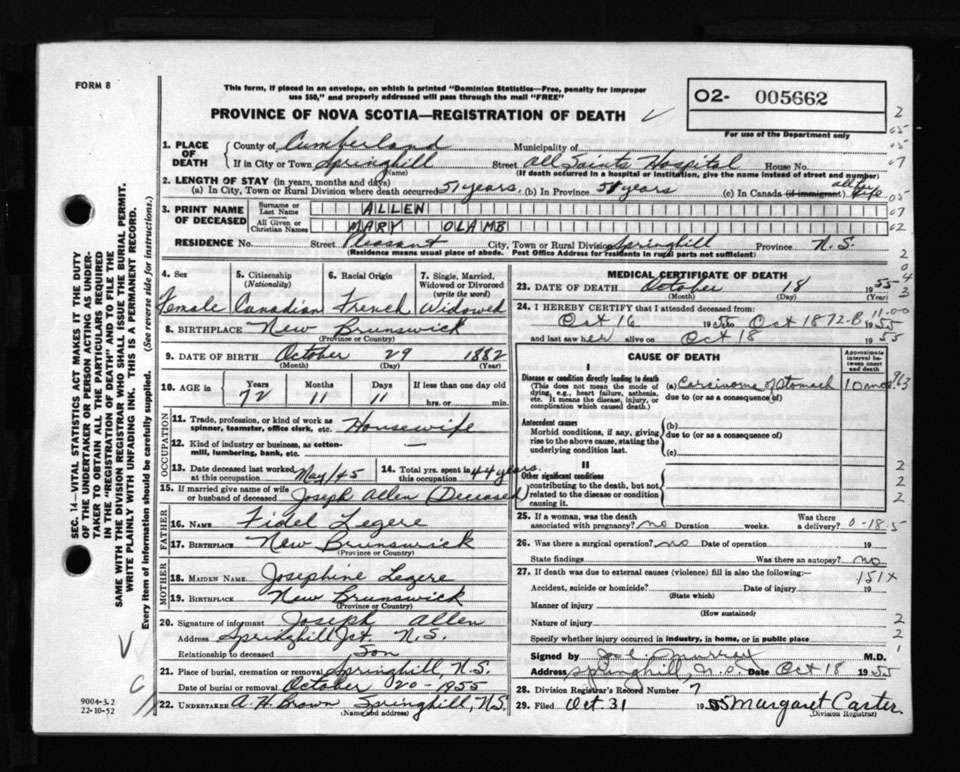 FORM 8
This form, if placed in an envelope, on which is printed "Dominion Statistics—Free, penalty for improper
use $50," and properly addressed will pass through the mail "FREE"
O2- 005662
For use of the Department only
PROVINCE OF NOVA SCOTIA—REGISTRATION OF DEATH
1. PLACE OF DEATH
County of Cumberland Municipality of
If in City or Town Springhill Street All Saints Hospital House No.
(Name) (If death occurred in a hospital or institution, give the name instead of street and number)
2. LENGTH OF STAY (in years, months and days)
(a) In City, Town or Rural Division where death occurred 51 years (b) In Province 51 years (c) In Canada (if immigrant) all life
3. PRINT NAME OF DECEASED
Surname or Last Name ALLEN
All Given or Christian Names MARY OLAMB
RESIDENCE No. Street Pleasant City, Town or Rural Division Springhill Province N.S.
(Residence means usual place of abode. Post Office Address for residents in rural parts not sufficient)
4. Sex 5. Citizenship (Nationality) 6. Racial Origin 7. Single, Married, Widowed or Divorced (write the word)
Female Canadian French Widowed
8. BIRTHPLACE New Brunswick
(Province or Country)
9. DATE OF BIRTH October 29 1882
(Month) (Day) (Year)
10. AGE in Years Months Days If less than one day old
72 11 11 hrs. or min.
OCCUPATION
11. Trade, profession, or kind of work as spinner, teamster, office clerk, etc. Housewife
12. Kind of industry or business, as cotton-mill, lumbering, bank, etc. —
13. Date deceased last worked at this occupation May/45 14. Total yrs. spent in this occupation 44 years.
15. If married give name of wife or husband of deceased Joseph Allen (Deceased)
FATHER
16. NAME Fidel Legere
17. BIRTHPLACE New Brunswick
(Province or Country)
MOTHER
18. MAIDEN NAME Josephine Legere
19. BIRTHPLACE New Brunswick
(Province or Country)
20. Signature of informant Joseph Allen
Address Springhill Jct. N.S.
Relationship to deceased Son
21. Place of burial, cremation or removal Springhill, N.S.
Date of burial or removal October 20-1955
22. UNDERTAKER A. H. Brown Springhill, N.S.
(Name and address)
MEDICAL CERTIFICATE OF DEATH
23. DATE OF DEATH October 18 1955
(Month) (Day) (Year)
24. I HEREBY CERTIFY that I attended deceased from:
Oct 16 1955 to Oct 18 1955
and last saw her alive on Oct 18 1955
CAUSE OF DEATH
Approximate interval between onset and death
I
Disease or condition directly leading to death (This does not mean the mode of dying, e.g., heart failure, asthenia, etc. It means the disease, injury, or complication which caused death.)
(a) Carcinoma of Stomach 10 mos
due to (or as a consequence of)
Antecedent causes
Morbid conditions, if any, giving rise to the above cause, stating the underlying condition last.
(b)
due to (or as a consequence of)
(c)
II
Other significant conditions contributing to the death, but not related to the disease or condition causing it.
25. If a woman, was the death associated with pregnancy? no Duration weeks. Was there a delivery? 0-18-5
26. Was there a surgical operation? no Date of operation 19
State findings Was there an autopsy? no
27. If death was due to external causes (violence) fill in also the following:— 151X
Accident, suicide or homicide? Date of injury 19
(State which)
Manner of injury
(How sustained)
Nature of injury
Specify whether injury occurred in industry, in home, or in public place
Signed by Murray M.D.
Address Springhill, N.S. Date Oct 18 1955
28. Division Registrar's Record Number 7
29. Filed Oct. 31 1955 Margaret Carter
(Division Registrar)
SEC. 14—VITAL STATISTICS ACT MAKES IT THE DUTY
OF THE UNDERTAKER OR PERSON ACTING AS UNDER-
TAKER TO OBTAIN ALL THE PARTICULARS REQUIRED
IN THE "REGISTRATION OF DEATH" AND TO FILE THE
SAME WITH THE DIVISION REGISTRAR WHO SHALL ISSUE THE BURIAL PERMIT.
WRITE PLAINLY WITH UNFADING INK. THIS IS A PERMANENT RECORD.
Every item of information should be carefully supplied. (See reverse side for instructions.)
9004-3.2
22-10-52